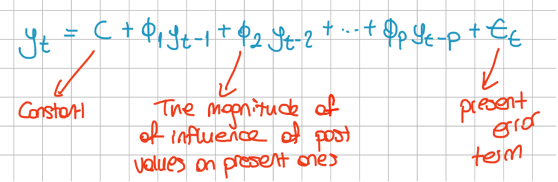 yₜ = C + ϕ₁yₜ₋₁ + ϕ₂ yₜ₋₂ + ... + ϕₚ yₜ₋ₚ + Ɛₜ
Constant
The magnitude of
of influence of past
values on present ones
present
error
term